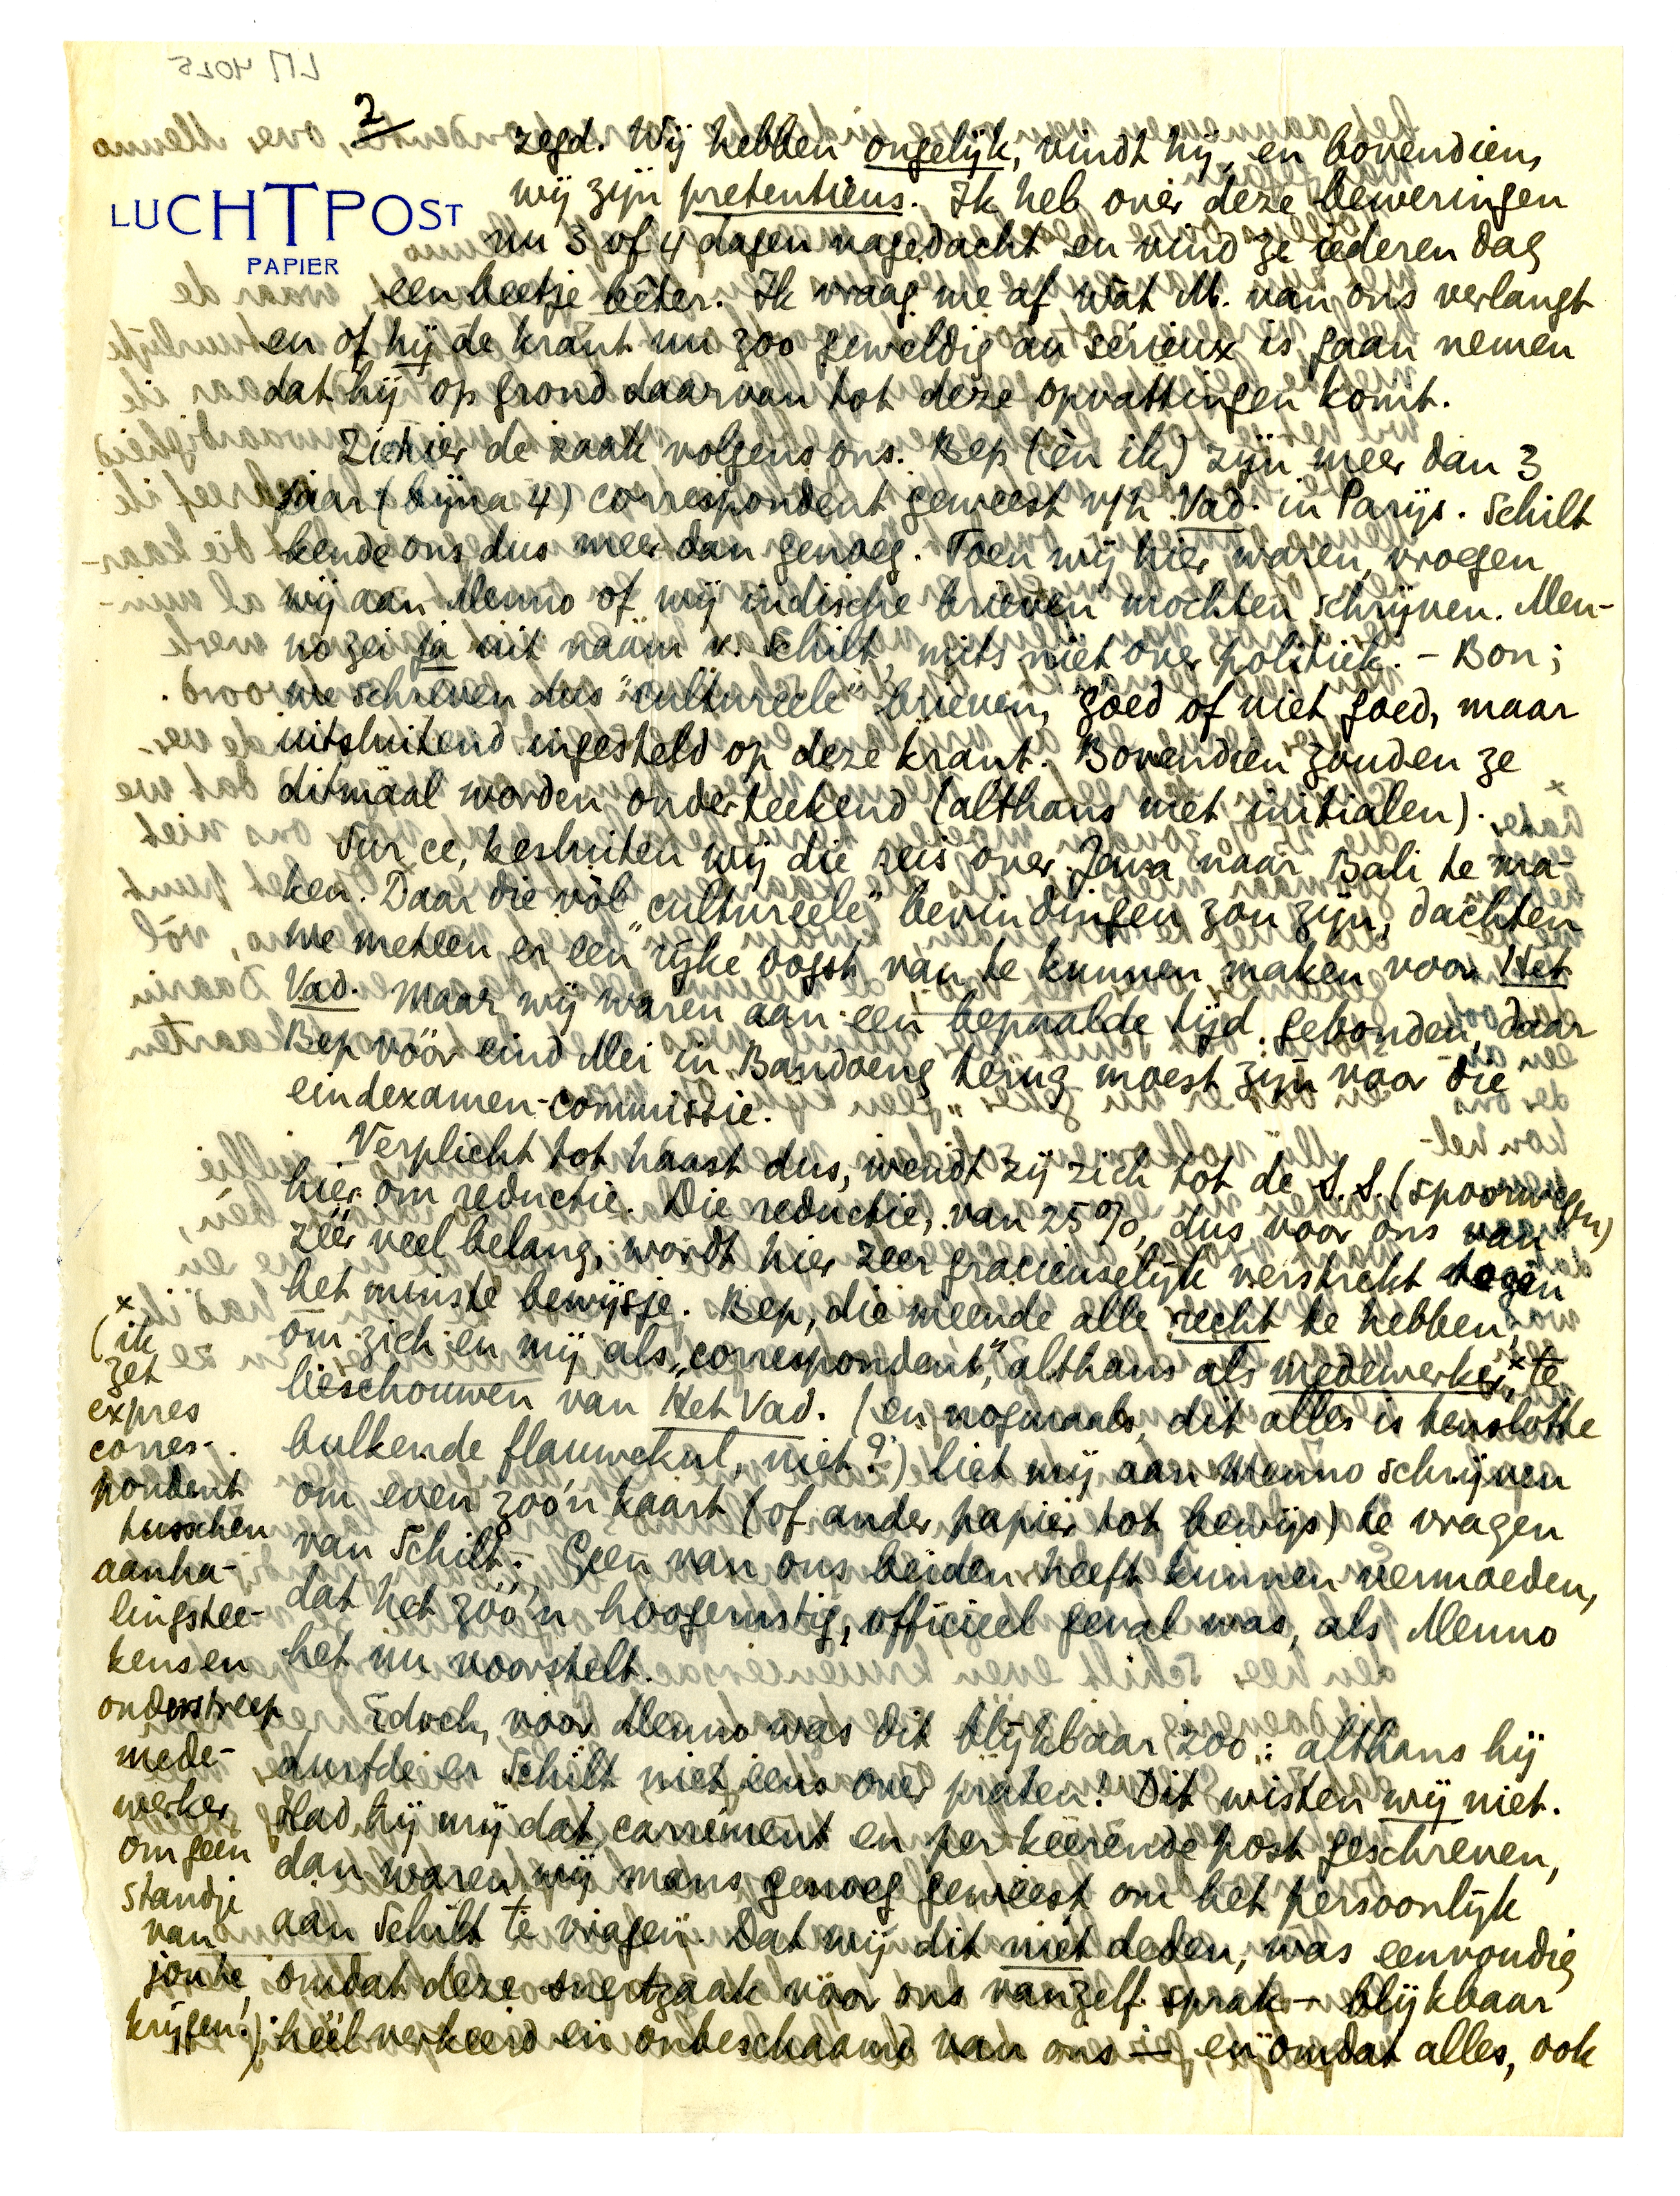 2
LUCHTPOST
PAPIER
zegd. Wij hebben ongelijk, vindt hij, en bovendien,
wij zijn pretentieus. Ik heb over deze beweringen
nu 3 of 4 dagen nagedacht en vind ze iederen dag
een beetje bêter. Ik vraag me af wàt M. van ons verlangt
en of hij de krant nu zoo geweldig au sérieux is gaan nemen
dat hij op grond daarvan tot deze opvattingen komt.
Ziehier de zaak volgens ons. Bep (èn ik) zijn meer dan 3
jaar (bijna 4) correspondent geweest v/h Vad. in Parijs. Schilt
kende ons dus meer dan genoeg. Toen wij hier waren, vroegen
wij aan Menno of wij indische brieven mochten schrijven. Men-
no zei ja uit naam v. Schilt, mits niet over politiek. – Bon;
we schreven dus "cultureele" brieven, goed of niet goed, maar
uitsluitend ingesteld op deze krant. Bovendien zouden ze
ditmaal worden onderteekend (althans met initialen).
Sur ce, besluiten wij die reis over Java naar Bali te ma-
ken. Daar die vòl "cultureele" bevindingen zou zijn, dachten
we meteen er een rijke oogst van te kunnen maken voor Het
Vad. Maar wij waren aan een bepaalde tijd gebonden, daar
Bep vóór eind Mei in Bandoeng terug moest zijn voor die
eindexamen-commissie.
Verplicht tot haast dus, wendt zij zich tot de S.S. (spoorwegen)
hier om reductie. Die reductie, van 25%, dus voor ons van
zéér veel belang, wordt hier zeer gracieuselijk verstrekt tegen
het minste bewijsje. Bep, die meende alle recht te hebben,
om zich en mij als „correspondent," althans als medewerker x te
beschouwen van Het Vad. (en nogmaals, dit alles is tenslotte
bulkende flauwekul, niet?) liet mij aan Menno schrijven
om even zoo'n kaart (of ander papier tot bewijs) te vragen
van Schilt. Geen van ons beiden heeft kunnen vermoeden,
dat het zóó'n hoogernstig, officieel geval was, als Menno
het nu voorstelt.
Edoch, voor Menno was dit blijkbaar zoo: althans hij
durfde er Schilt niet eens over praten! Dit wisten wij niet.
Had hij mij dat carrément en per keerende post geschreven,
dan waren wij mans genoeg geweest om het persoonlijk
aan Schilt te vragen. Dat wij dit niet deden, was eenvoudig
omdat deze snertzaak voor ons vanzelf sprak – blijkbaar
heel verkeerd en onbeschaamd van ons – en omdat alles, ook
x
(ik
zet
expres
corres-
pondent
tusschen
aanha-
lingstee-
kens en
onderstreep
mede-
werker
om geen
standje
van
jou te
krijgen.)
LM 4025